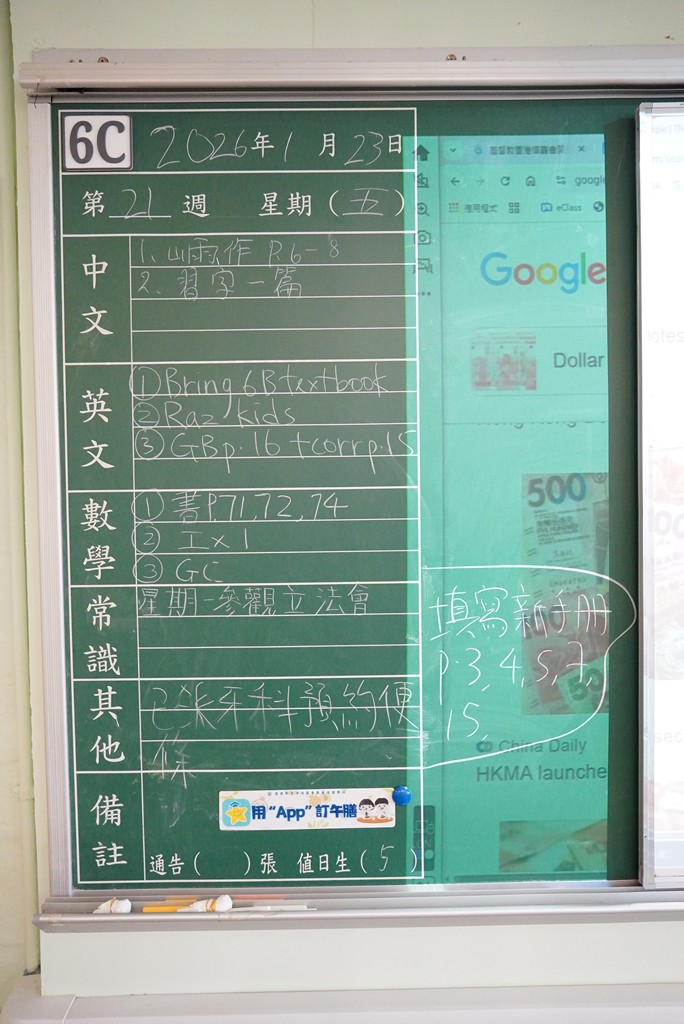 6C 2026年1月23日
第21週 星期(五)
中文
1. 山雨作 P.6-8
2. 習字一篇
英文
① Bring 6B textbook
② Raz kids
③ GB p.16 + corr p.15
數學
① 書P.71,72,74
② 工x1
③ GC
常識
星期一參觀立法會
其他
已派牙科預約便
條
備註
用“App”訂午膳
通告( )張 值日生(5)
填寫新手冊
p.3,4,5,7,
15,
google
應用程式
eClass
Google
Dollar
500
China Daily
HKMA launche